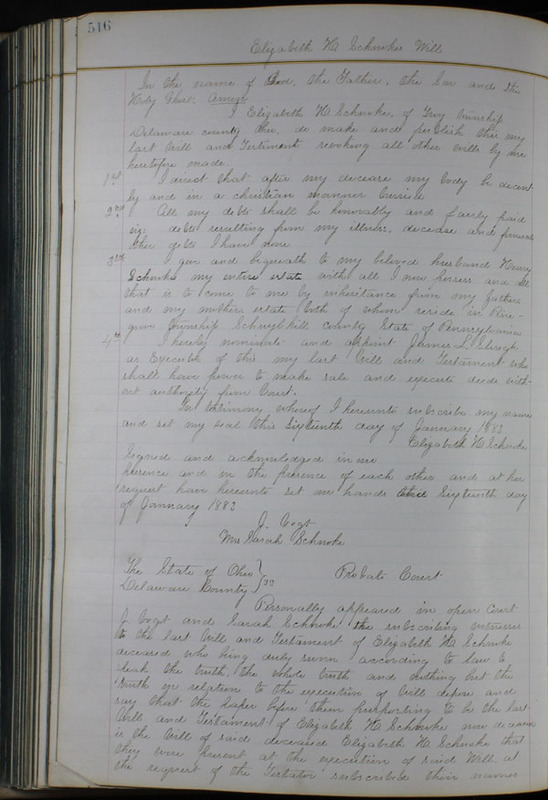 516
Elizabeth H. Schnoke Will
In the name of God, the Father, the Son and the
Holy Ghost. Amen
I Elizabeth H. Schnoke, of Troy Township
Delaware county Ohio, do make and publish this my
last Will and Testament revoking all other wills by me
heretofore made.
1st I direct that after my decease my body be decent
ly and in a christian manner buried
2nd All my debts shall be honorably and fairly paid
viz: debts resulting from my illness, decease and funeral
other debts I have none
3rd I give and bequeath to my beloved husband Henry
Schnoke my entire estate with all I now possess and all
that is to come to me by inheritance from my father
and my mothers estate both of whom reside in Pine-
grove Township Schuylkill County State of Pennsylvania
4th I hereby nominate and appoint James L.
as Executor of this my last Will and Testament who
shall have power to make sale and execute deeds with-
out authority from Court.
In testimony whereof I hereunto subscribe my name
and set my seal this Sixteenth day of January 1883
Elizabeth H. Schnoke
Signed and acknowledged in our
presence and in the presence of each other and at her
request have hereunto set our hands this Sixteenth day
of January 1883
J. Vogt
Mrs Sarah Schnoke
The State of Ohio
Delaware County } ss Probate Court
Personally appeared in open Court
J. Vogt and Sarah Schnoke the subscribing witnesses
to the last Will and Testament of Elizabeth H. Schnoke
deceased who being duly sworn according to law to
speak the truth, the whole truth and nothing but the
truth in relation to the execution of Will depose and
say that the paper before them purporting to be the last
Will and Testament of Elizabeth H. Schnoke now deceased
is the Will of said deceased Elizabeth H. Schnoke that
they were present at the execution of said Will at
the request of the Testator subscribed their names